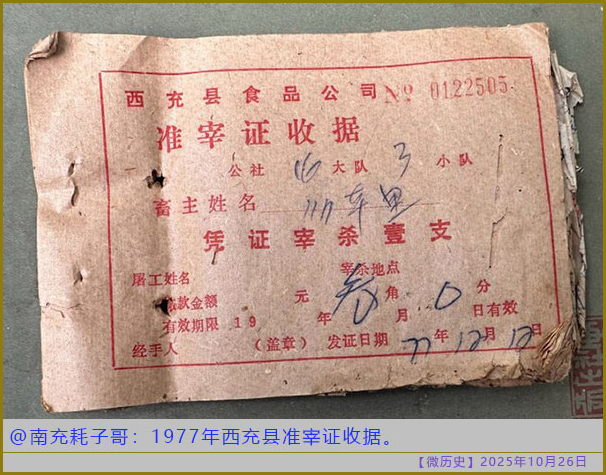 西充县食品公司 № 0122505
准宰证收据
公社 16 大队 3 小队
畜主姓名
凭证宰杀壹支
屠工姓名 宰杀地点
收款金额 元 叁 角 0 分
有效期限19 年 月 日有效
经手人 （盖章） 发证日期 77年12月12日
@南充耗子哥：1977年西充县准宰证收据。
【微历史】2025年10月26日